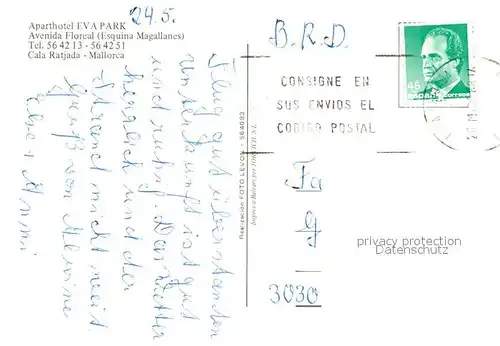 24.5.
Aparthotel EVA PARK
Avenida Floreal (Esquina Magallanes)
Tel. 56 42 13 - 56 42 51
Cala Ratjada - Mallorca
Flug gut überstanden
Unterkunft ist gut
und ruhig. Das Wetter
herrlich und der
Strand nicht weit.
Gruß von
Realización FOTO LEVON - 564093
B.R.D.
CONSIGNE EN
SUS ENVIOS EL
CODIGO POSTAL
45
ESPAÑA correos
Fa
g
3030
privacy protection
Datenschutz